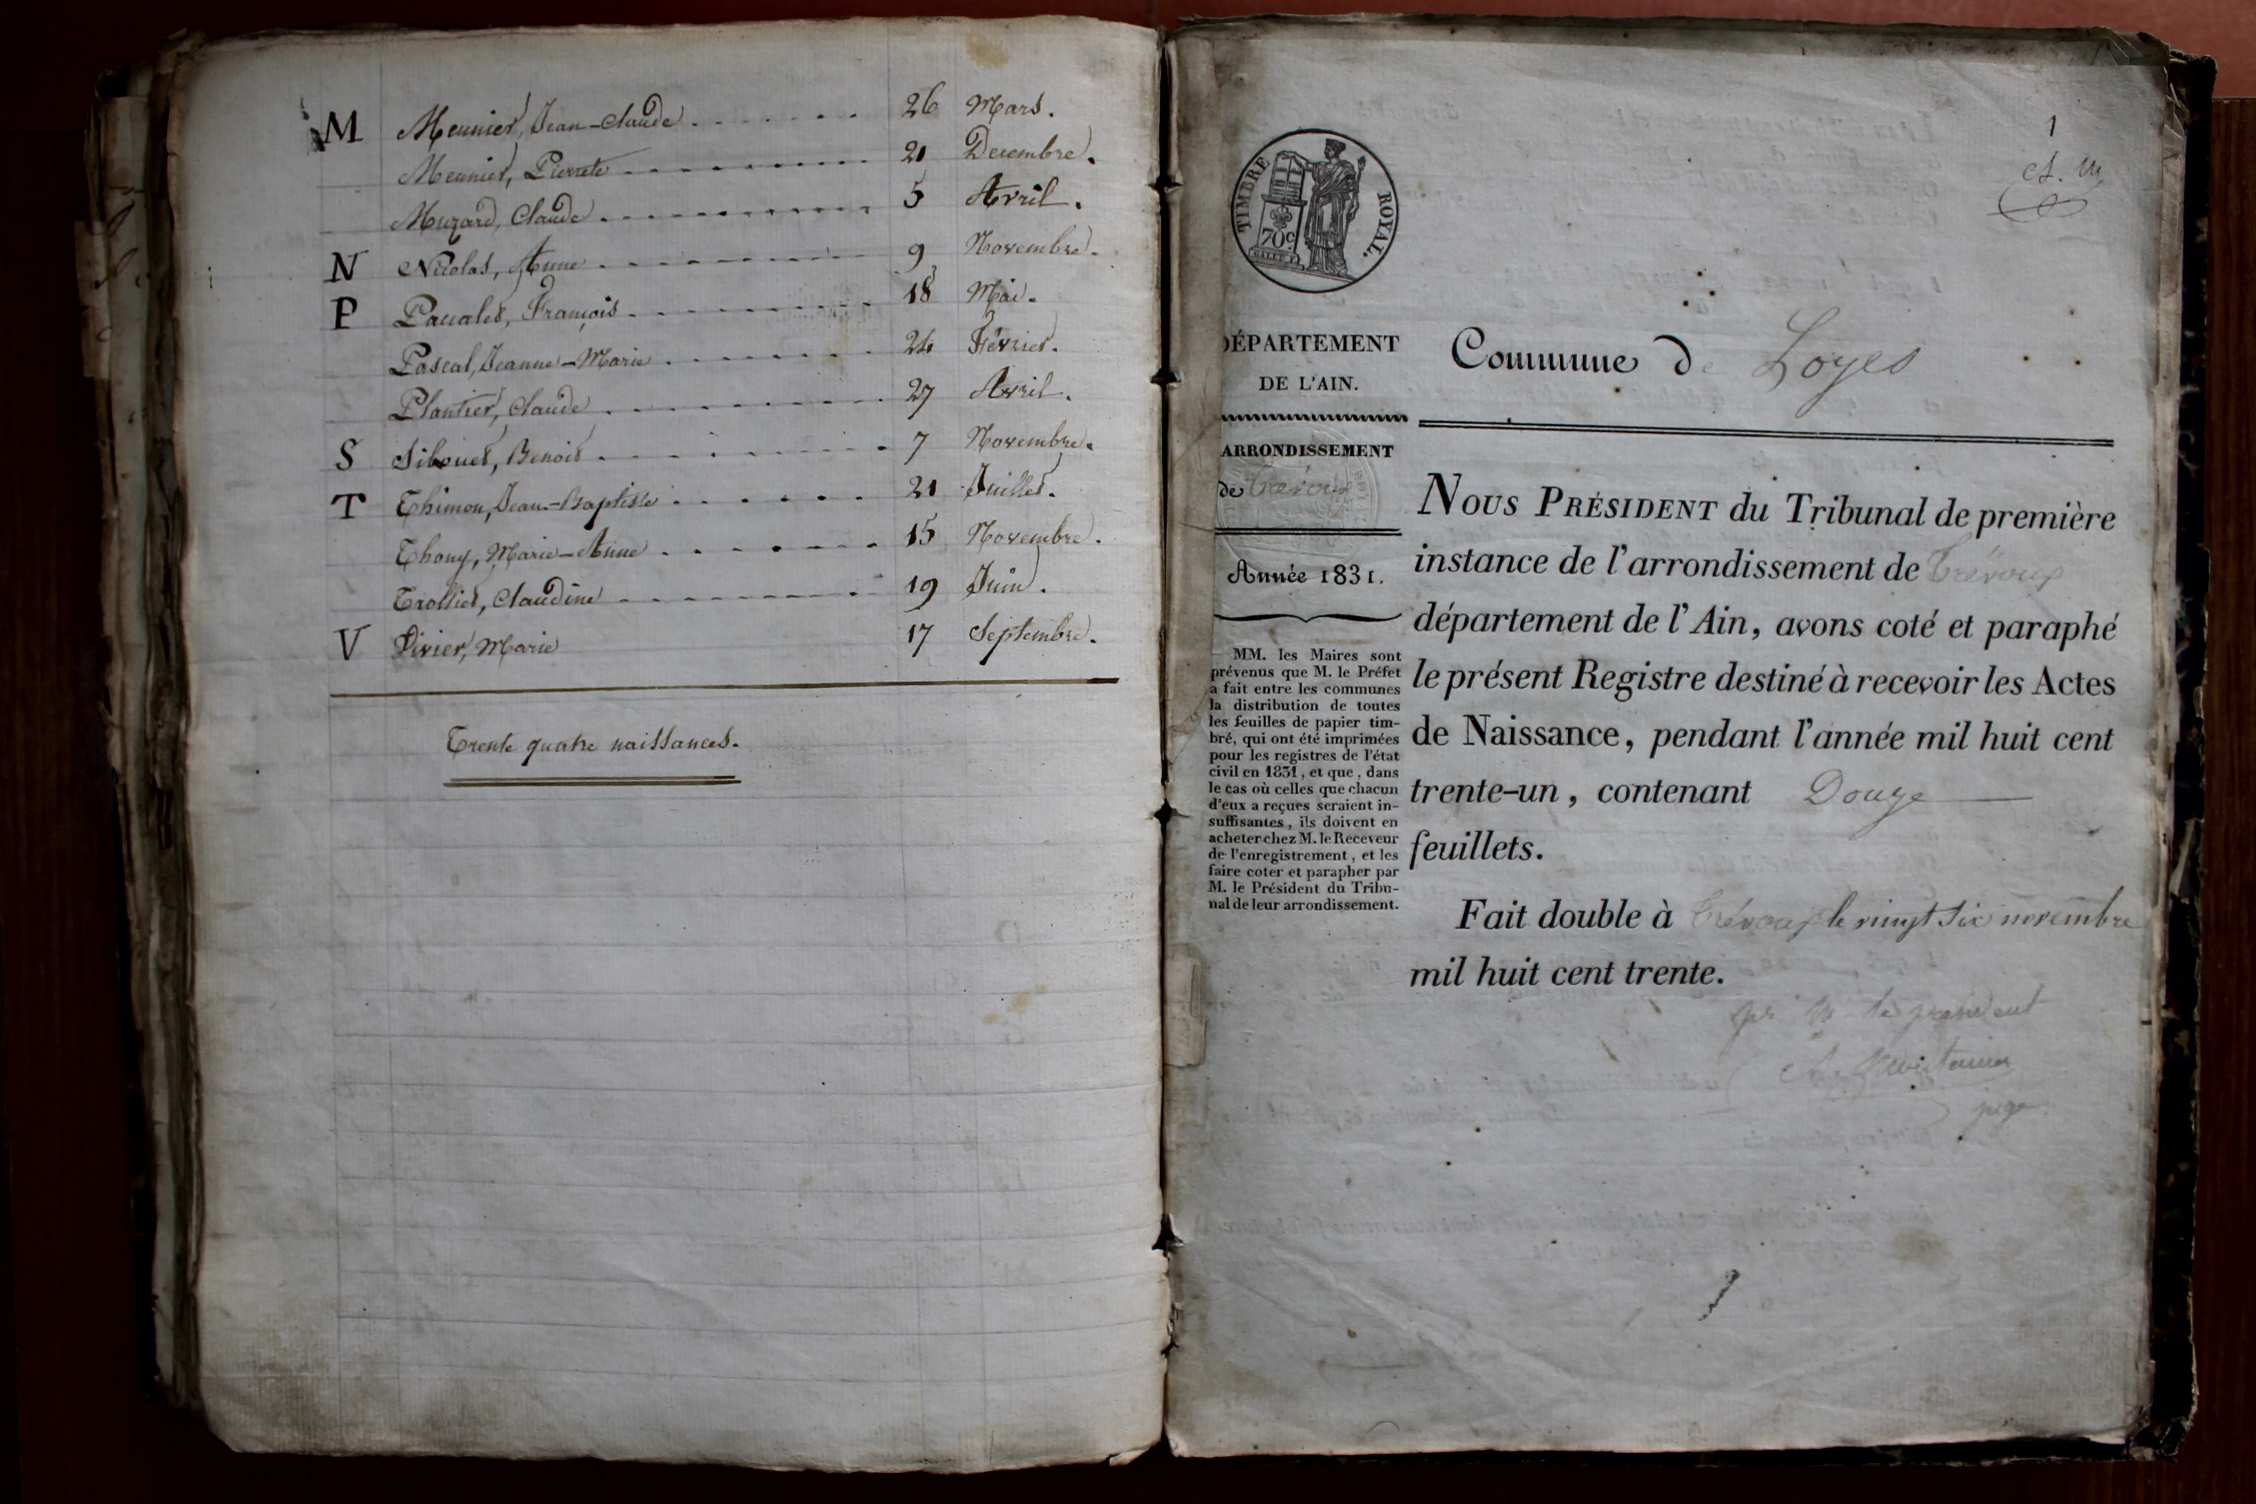 M Meunier, Jean-Claude 26 Mars.
Meunier, Pierrete 21 Decembre.
Muzard, Claude 5 Avril.
N Nicolas, Anne 9 Novembre.
P Pacalet, François 18 Mai.
Pascal, Jeanne-Marie 24 Février.
Plantier, Claude 27 Avril.
S Sibouet, Benoit 7 Novembre.
T Thimon, Jean-Baptiste 21 Juillet.
Thony, Marie-Anne 15 Novembre.
Trollier, Claudine 19 Juin.
V Vivier, Marie 17 Septembre.
Trente quatre naissances.
1
TIMBRE ROYAL.
70c
DÉPARTEMENT
DE L'AIN.
ARRONDISSEMENT
de Trévoux
Année 1831.
MM. les Maires sont
prévenus que M. le Préfet
a fait entre les communes
la distribution de toutes
les feuilles de papier tim-
bré, qui ont été imprimées
pour les registres de l'état
civil en 1831, et que, dans
le cas où celles que chacun
d'eux a reçues seraient in-
suffisantes, ils doivent en
acheter chez M. le Receveur
de l'enregistrement, et les
faire coter et parapher par
M. le Président du Tribu-
nal de leur arrondissement.
Commune de Loyes
NOUS PRÉSIDENT du Tribunal de première
instance de l'arrondissement de Trévoux
département de l'Ain, avons coté et paraphé
le présent Registre destiné à recevoir les Actes
de Naissance, pendant l'année mil huit cent
trente-un, contenant Douze
feuillets.
Fait double à Trévoux le vingt six novembre
mil huit cent trente.
pr M le président
juge